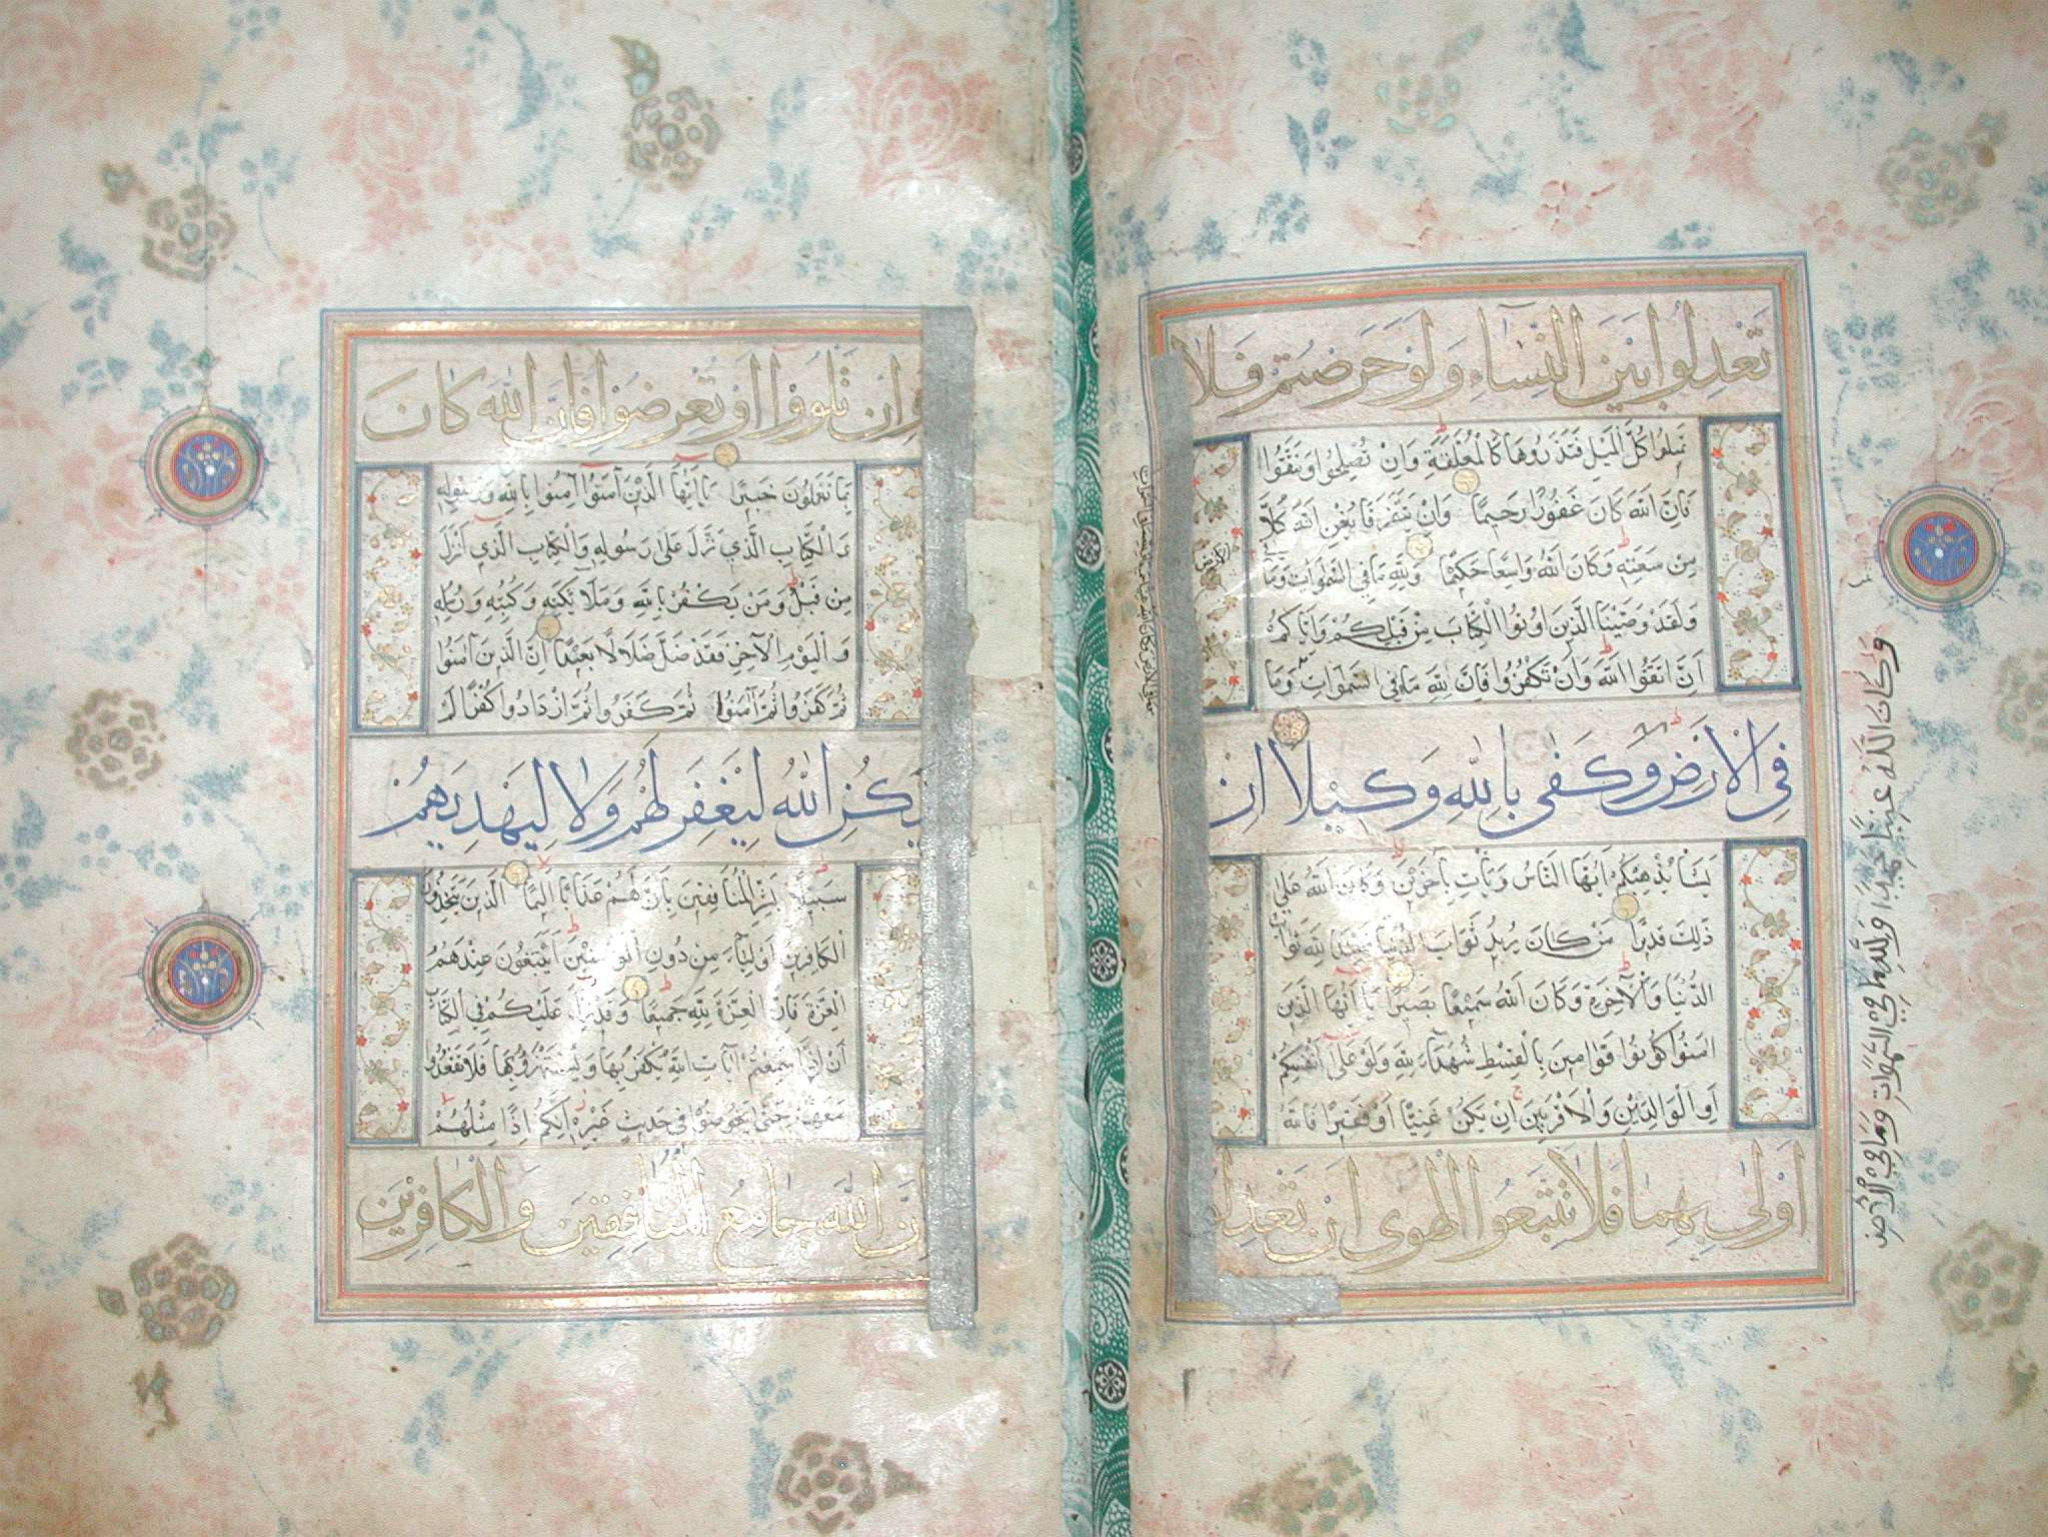 تَعْدِلُوا بَيْنَ النِّسَاءِ وَلَوْ حَرَصْتُمْ فَلَا
تَمِيلُوا كُلَّ الْمَيْلِ فَتَذَرُوهَا كَالْمُعَلَّقَةِ وَاِنْ تُصْلِحُوا وَتَتَّقُوا
فَاِنَّ اللّٰهَ كَانَ غَفُورًا رَحِيمًا وَاِنْ يَتَفَرَّقَا يُغْنِ اللّٰهُ كُلًّا
مِنْ سَعَتِهِ وَكَانَ اللّٰهُ وَاسِعًا حَكِيمًا وَلِلّٰهِ مَا فِي السَّمٰوَاتِ وَمَا
فِي الْاَرْضِ
وَلَقَدْ وَصَّيْنَا الَّذِينَ اُوتُوا الْكِتَابَ مِنْ قَبْلِكُمْ وَاِيَّاكُمْ
اَنِ اتَّقُوا اللّٰهَ وَاِنْ تَكْفُرُوا فَاِنَّ لِلّٰهِ مَا فِي السَّمٰوَاتِ وَمَا
فِي الْاَرْضِ وَكَفٰى بِاللّٰهِ وَكِيلًا اِنْ
يَشَأْ يُذْهِبْكُمْ اَيُّهَا النَّاسُ وَيَأْتِ بِآخَرِينَ وَكَانَ اللّٰهُ عَلٰى
ذٰلِكَ قَدِيرًا مَنْ كَانَ يُرِيدُ ثَوَابَ الدُّنْيَا فَعِنْدَ اللّٰهِ ثَوَابُ
الدُّنْيَا وَالْآخِرَةِ وَكَانَ اللّٰهُ سَمِيعًا بَصِيرًا يَا اَيُّهَا الَّذِينَ
اٰمَنُوا كُونُوا قَوَّامِينَ بِالْقِسْطِ شُهَدَاءَ لِلّٰهِ وَلَوْ عَلٰى اَنْفُسِكُمْ
اَوِ الْوَالِدَيْنِ وَالْاَقْرَبِينَ اِنْ يَكُنْ غَنِيًّا اَوْ فَقِيرًا فَاللّٰهُ
اَوْلٰى بِهِمَا فَلَا تَتَّبِعُوا الْهَوٰى اَنْ تَعْدِلُوا
وَكَانَ اللّٰهُ غَنِيًّا حَمِيدًا وَلِلّٰهِ مَا فِي السَّمٰوَاتِ وَمَا فِي الْاَرْضِ
وَاِنْ تَلْوُوا اَوْ تُعْرِضُوا فَاِنَّ اللّٰهَ كَانَ
بِمَا تَعْمَلُونَ خَبِيرًا يَا اَيُّهَا الَّذِينَ آمَنُوا آمِنُوا بِاللّٰهِ وَرَسُولِهِ
وَالْكِتَابِ الَّذِي نَزَّلَ عَلٰى رَسُولِهِ وَالْكِتَابِ الَّذِي اَنْزَلَ
مِنْ قَبْلُ وَمَنْ يَكْفُرْ بِاللّٰهِ وَمَلَائِكَتِهِ وَكُتُبِهِ وَرُسُلِهِ
وَالْيَوْمِ الْآخِرِ فَقَدْ ضَلَّ ضَلَالًا بَعِيدًا اِنَّ الَّذِينَ آمَنُوا
ثُمَّ كَفَرُوا ثُمَّ آمَنُوا ثُمَّ كَفَرُوا ثُمَّ ازْدَادُوا كُفْرًا لَمْ
يَكُنِ اللّٰهُ لِيَغْفِرَ لَهُمْ وَلَا لِيَهْدِيَهُمْ
سَبِيلًا بَشِّرِ الْمُنَافِقِينَ بِاَنَّ لَهُمْ عَذَابًا اَلِيمًا الَّذِينَ يَتَّخِذُونَ
الْكَافِرِينَ اَوْلِيَاءَ مِنْ دُونِ الْمُؤْمِنِينَ اَيَبْتَغُونَ عِنْدَهُمُ
الْعِزَّةَ فَاِنَّ الْعِزَّةَ لِلّٰهِ جَمِيعًا وَقَدْ نَزَّلَ عَلَيْكُمْ فِي الْكِتَابِ
اَنْ اِذَا سَمِعْتُمْ آيَاتِ اللّٰهِ يُكْفَرُ بِهَا وَيُسْتَهْزَأُ بِهَا فَلَا تَقْعُدُوا
مَعَهُمْ حَتّٰى يَخُوضُوا فِي حَدِيثٍ غَيْرِهِ اِنَّكُمْ اِذًا مِثْلُهُمْ
اِنَّ اللّٰهَ جَامِعُ الْمُنَافِقِينَ وَالْكَافِرِينَ